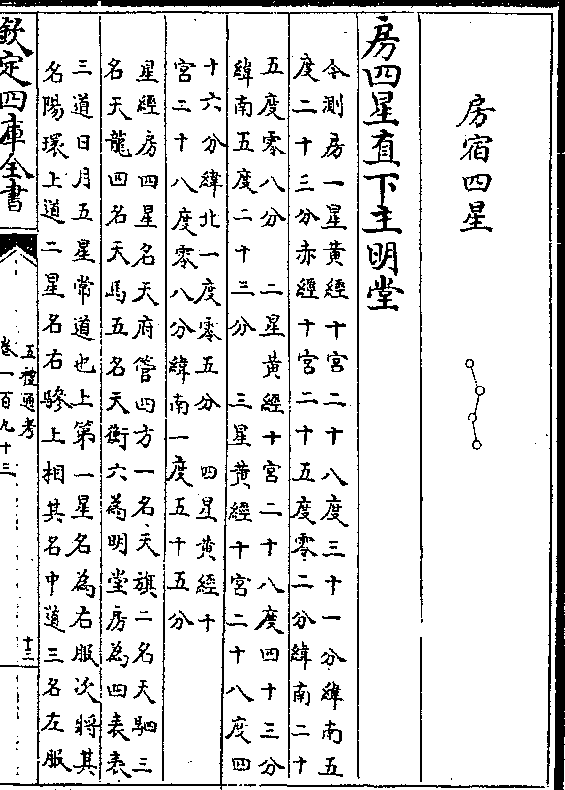 房宿四星
房四星直下主明堂
今測房一星黄經十宮二十八度三十一分緯南五
度二十三分赤經十宮二十五度零二分緯南二十
五度零八分　二星黄經十宮二十八度四十三分
緯南五度二十三分　三星黄經十宮二十八度四
十六分緯北一度零五分　四星黄經十
宮二十八度零八分緯南一度五十五分
星經房四星名天府管四方一名天旗二名天駟三
名天龍四名天馬五名天衡六為明堂房為四表表
三道日月五星常道也上第一星名為右服次將其
名陽環上道二星名右驂上相其名中道三名左服
欽定四庫全書
五禮通考
卷一百九十三
十三